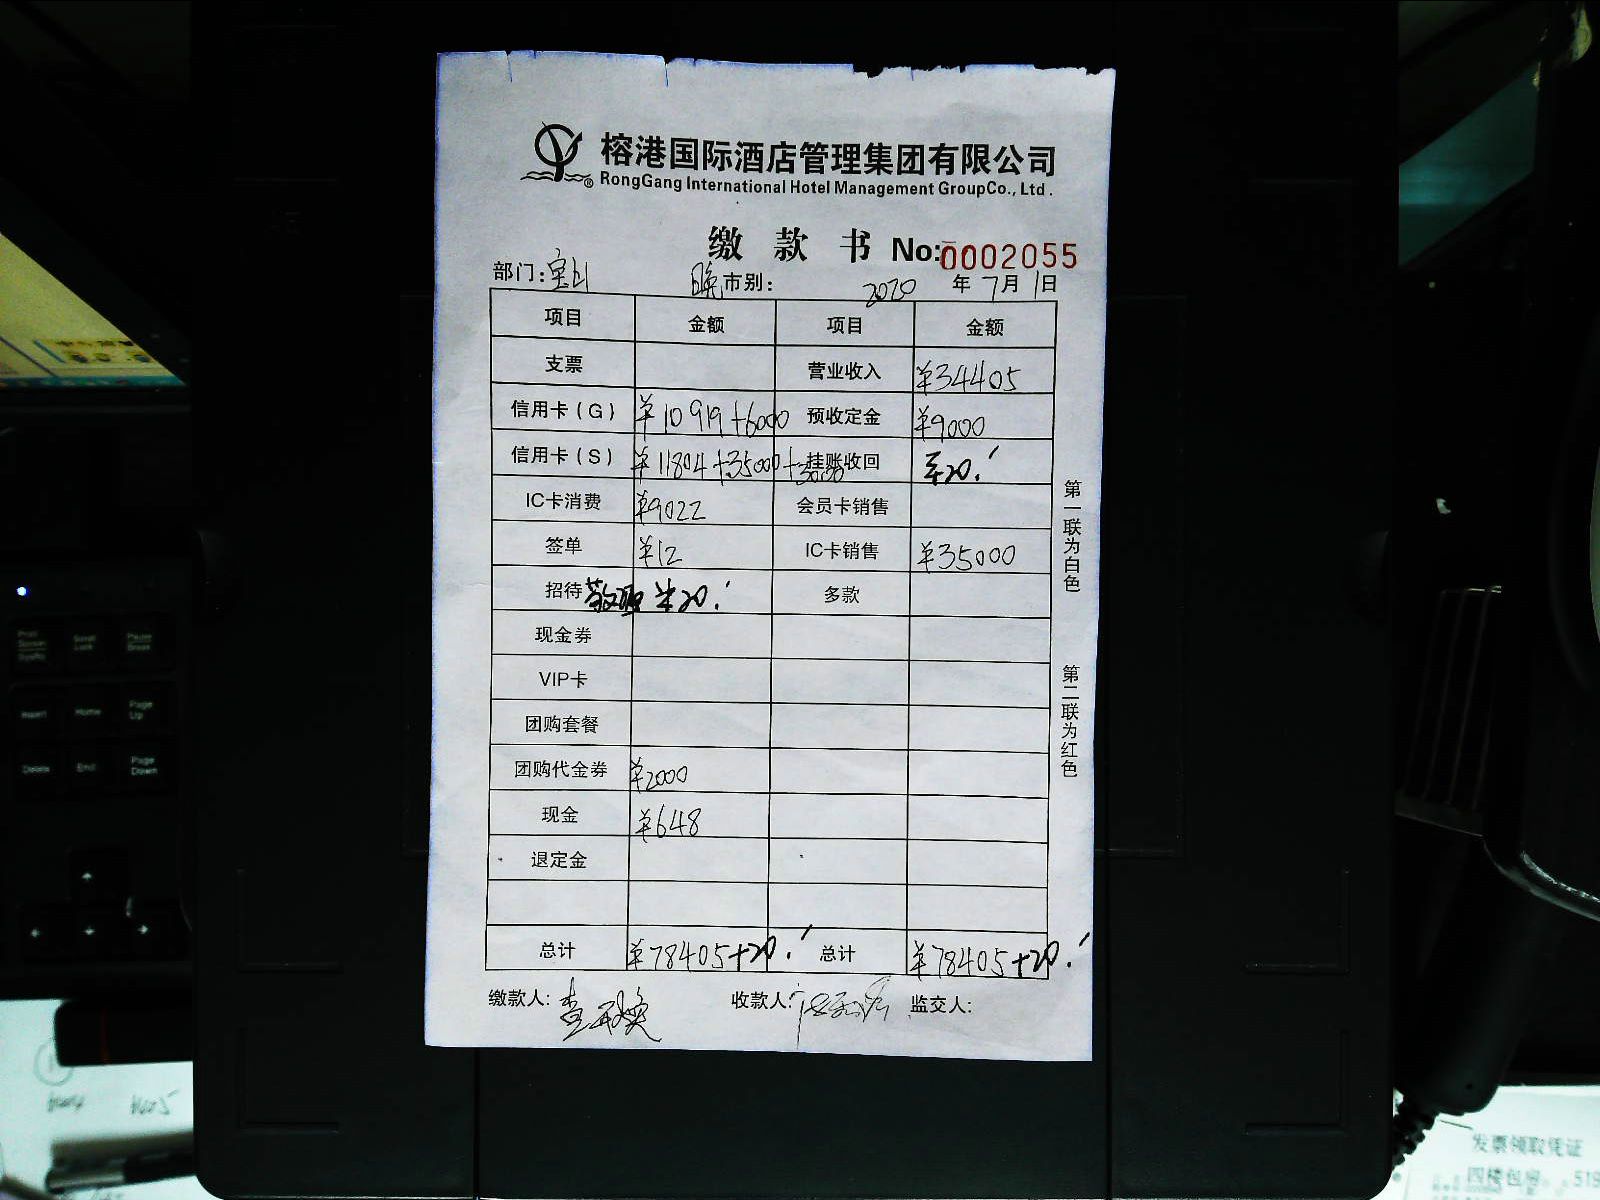 榕港国际酒店管理集团有限公司
RongGang International Hotel Management GroupCo., Ltd.
缴款书 No:0002055
部门: 晚市别: 2020年7月1日
项目 金额 项目 金额
支票 营业收入 ¥34405
信用卡(G) ¥10919+6000 预收定金 ¥9000
信用卡(S) ¥11804+35000+3000 挂账收回 ¥20.
IC卡消费 ¥9022 会员卡销售
签单 ¥12 IC卡销售 ¥35000
招待 ¥20. 多款
现金券
VIP卡
团购套餐
团购代金券 ¥2000
现金 ¥648
退定金
总计 ¥78405+20. 总计 ¥78405+20.
缴款人: 收款人: 监交人:
第一联为白色
第二联为红色
Insert Home Page Up
Delete End Page Down
发票领取凭证